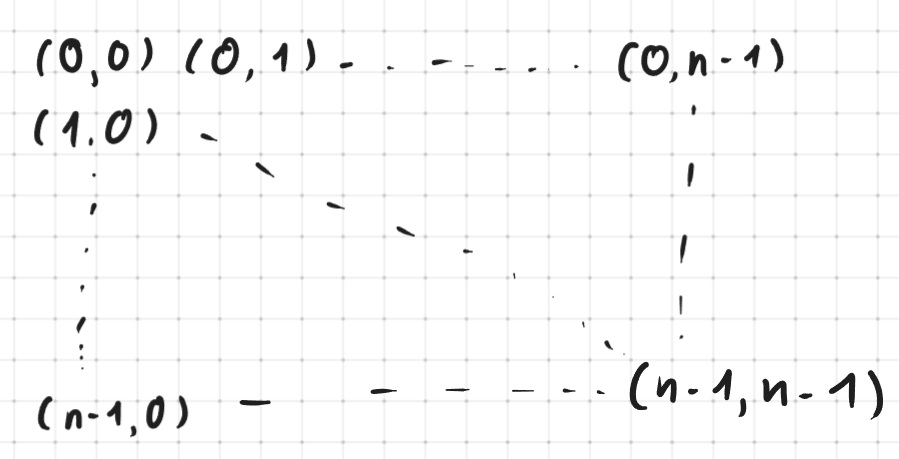 (0,0) (0,1) - . - - - - . (0,n-1)
(1.0)
(n-1,0) - - - - - . (n-1,n-1)